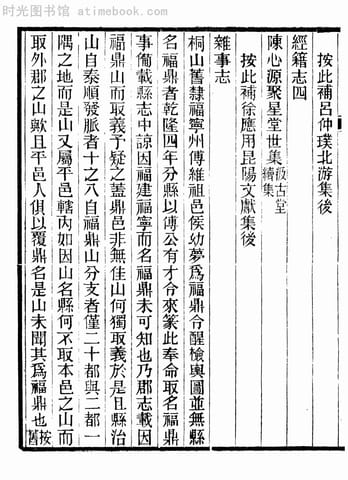 时光图书馆 atimebook.com
按此補呂仲璞北游集後
經籍志四
陳心源聚星堂世集 汲古堂續集
按此補徐應用昆陽文獻集後
雜事志
桐山舊隸福寧州傅維祖邑侯幼夢爲福鼎令醒檢輿圖並無縣
名福鼎者乾隆四年分縣以傅公有才令來篆此奉命取名福鼎
事葡載縣志中諒因福建福寧而名福鼎未可知也乃郡志載因
福鼎山而取義予疑之蓋鼎邑非無佳山何獨取義於是且縣治
山自泰順發脈者十之八自福鼎山分支者僅二十都與二都一
隅之地而是山又屬平邑轄內如因山名縣何不取本邑之山而
取外郡之山歟且平邑人俱以覆鼎名是山未聞其爲福鼎也 按舊